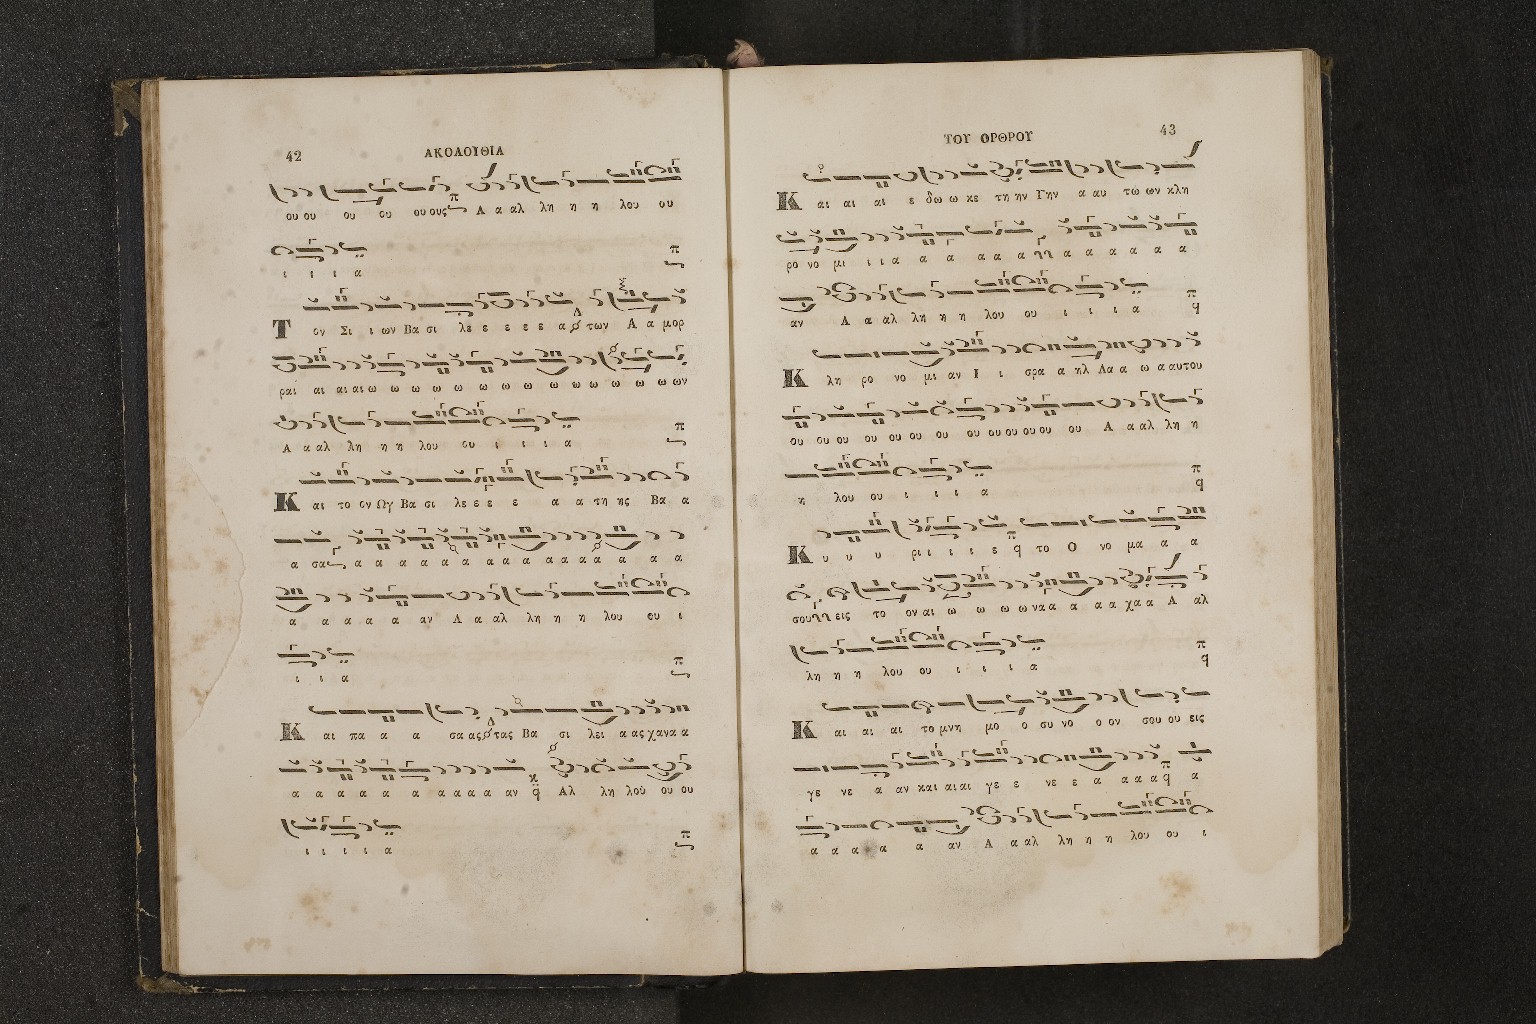 42
ΑΚΟΛΟΥΘΙΑ
ου ου ου ου ου ους Α α αλ λη η η λου ου
ι ι ι α
Τ ον Σι ι ων Βα σι λε ε ε ε ε ε α των Α α μορ
ραί αι αι αι ω ω ω ω ω ω ω ω ω ω ω ω ω ων
Α α αλ λη η η λου ου ι ι ι α
Κ αι το ον Ωγ Βα σι λε ε ε ε α α τη ης Βα α
α σα α α α α α α α α α α α α α α α
α α α α α αν Α α αλ λη η η λου ου ι
ι ι α
Κ αι πα α α σα ας τας Βα σι λει α ας χανα α
α α α α α α α α α α αν Αλ λη λού ου ου
ι ι ι ι α
ΤΟΥ ΟΡΘΡΟΥ
43
Κ αι αι αι ε δω ω κε τη ην Γην α αυ τω ων κλη
ρο νο μι ι ι α α α α α α α α α α α
αν Α α αλ λη η η λου ου ι ι ι α
Κ λη ρο νο μι αν Ι ι σρα α ηλ Λα α ω α αυτου
ου ου ου ου ου ου ου ου ου ου ου ου ου Α α αλ λη η
η λου ου ι ι ι α
Κ υ υ υ ρι ι ι ι ε το Ο νο μα α α
σου εις το ον αι ω ω ω ω να α α α α χα α Α αλ
λη η η λου ου ι ι ι α
Κ αι αι αι το μνη μο ο συ νο ο ον σου ου εις
γε νε α αν και αι αι γε ε νε ε α α α α α
α α α α α αν Α α αλ λη η η λου ου ι